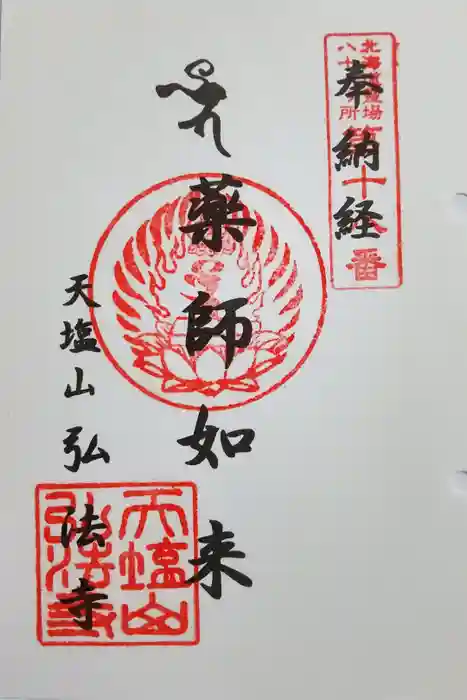 奉納経
北海道霊場
八十八ヶ所
番
薬師如来
天塩山弘法寺
天塩山
弘法寺